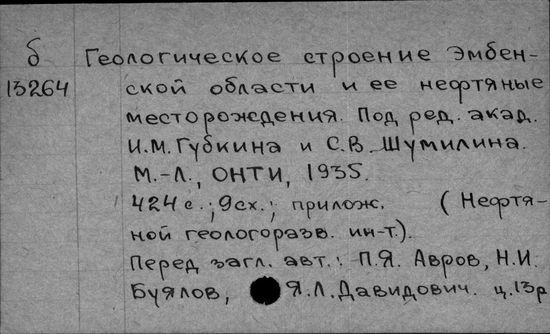 б Геологическое строение Эмбен-
13264 ской области и ее нефтяные
месторождения. Под ред. акад.
И.М. Губкина и С.В. Шумилина.
М.-Л., ОНТИ, 1935.
424с.; 9сх.; прилож. (Нефтя-
ной геологоразв. ин-т.).
Перед загл. авт.: П.Я. Авров, Н.И.
Буялов, Я.Л. Давидович. ц.13р